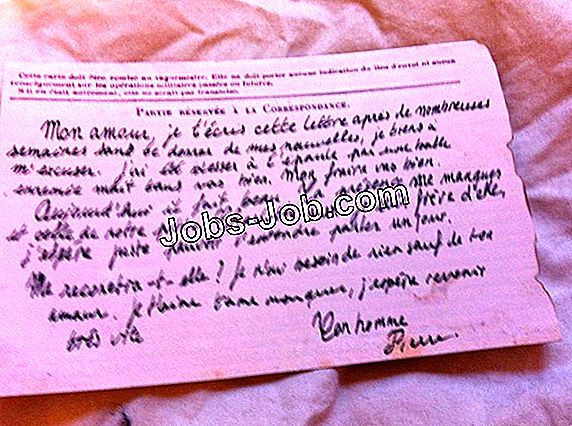 Cette carte doit être remise au vaguemestre. Elle ne doit porter aucune indication du lieu d'envoi ni aucun
renseignement sur les opérations militaires passées ou futures.
S'il en était autrement, elle ne serait pas transmise.
PARTIE RÉSERVÉE À LA CORRESPONDANCE.
Mon amour, je t'écris cette lettre après de nombreuses
semaines sans te donner de mes nouvelles, je tiens à
m'excuser. j'ai été blesser à l'épaule par une balle
ennemie mait tous vas bien. Mon frère vas bien.
Aujourd'hui il fait beau. La présence me manques
et celle de notre frère d'elle,
j'espère juste pouvoir l'entendre parler un jour.
Jobs-Job.com
Me reconaitra-t-elle? Je n'ai besoin de rien sauf de ton
amour. je t'aime tume manques, j'espère revenir
très vite
Ton homme
Pierre.